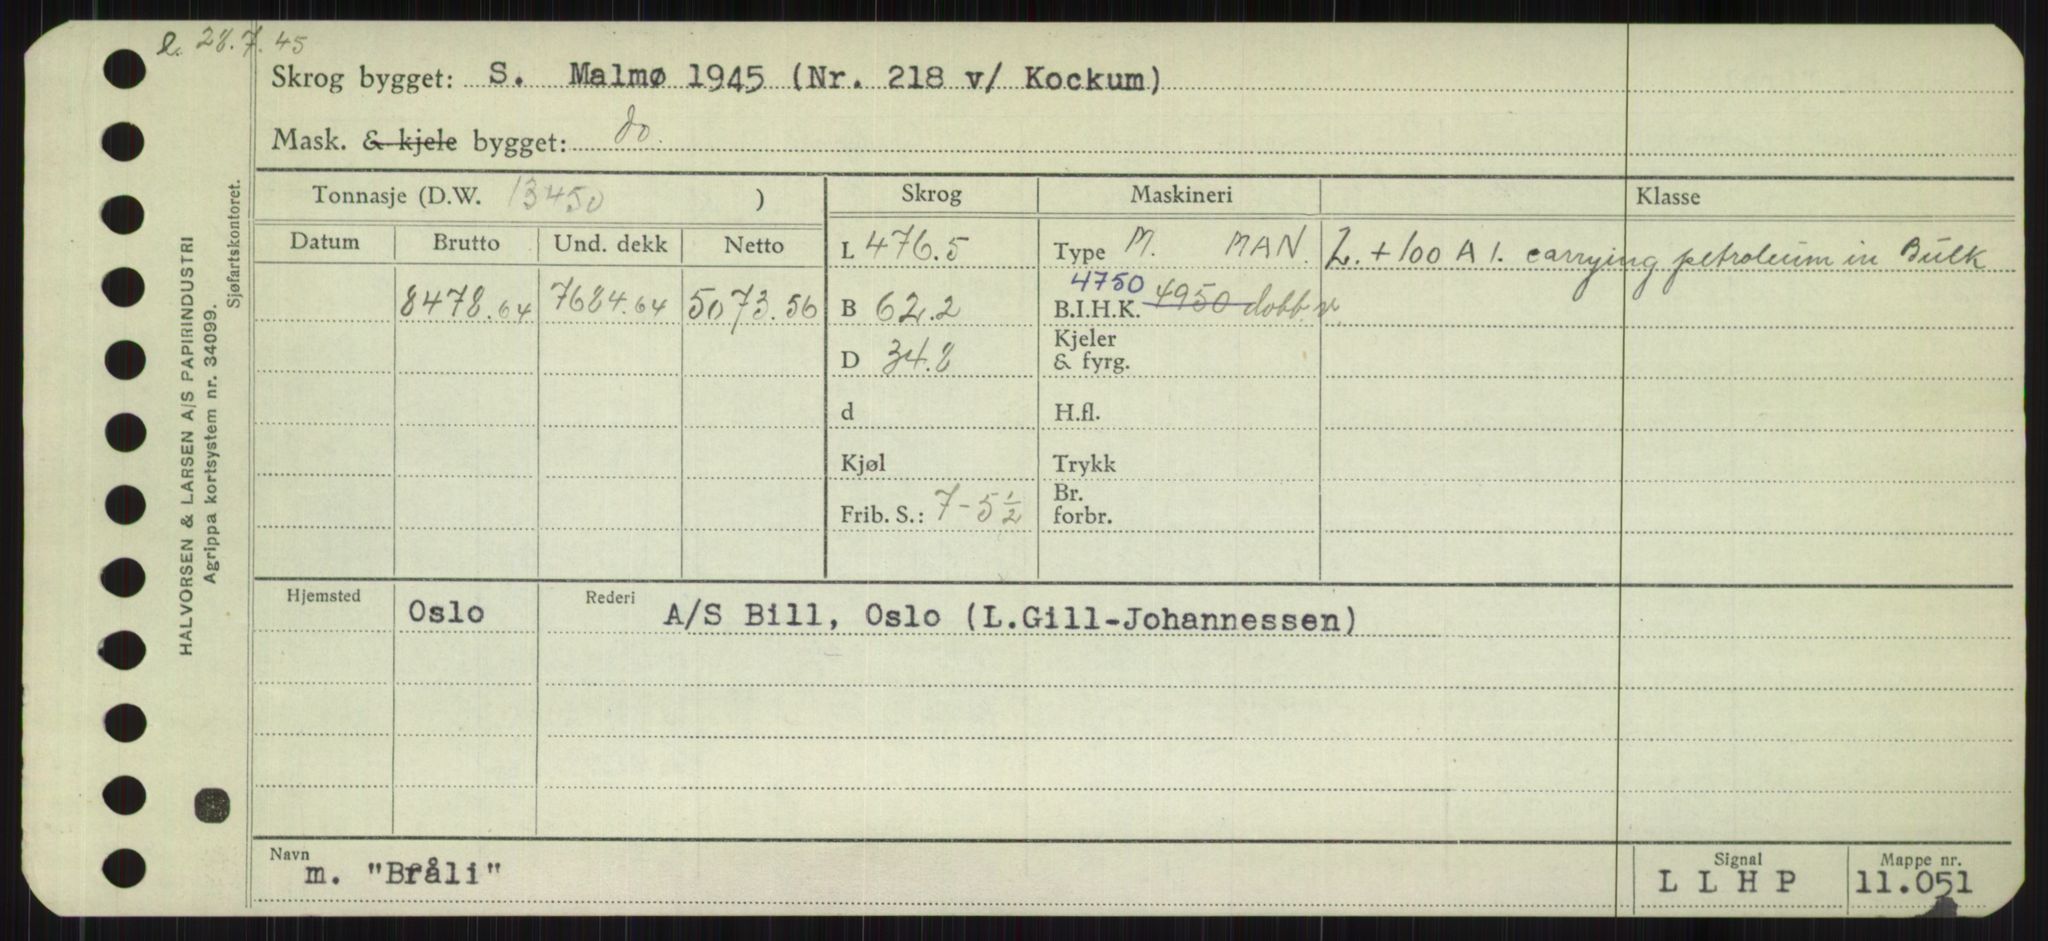 l. 28.7.45
Skrog bygget: S. Malmø 1945 (Nr. 218 v/ Kockum)
Mask. & kjele bygget: do.
Tonnasje (D.W. 13450 ) Skrog Maskineri Klasse
Datum Brutto Und. dekk Netto L 476.5 Type M. MAN. L. + 100 A 1. carrying petroleum in Bulk
4750
8478.64 7684.64 5073.56 B 62.2 B.I.H.K. 4950 dobb. v.
D 34.8 Kjeler
& fyrg.
d H.fl.
Kjøl Trykk
Frib. S.: 7-5 ½ Br.
forbr.
Hjemsted Oslo Rederi A/S Bill, Oslo (L.Gill-Johannessen)
Navn Signal Mappe nr.
m. "Bråli" L L H P 11.051
HALVORSEN & LARSEN A/S PAPIRINDUSTRI
Agrippa kortsystem nr. 34099.
Sjøfartskontoret.